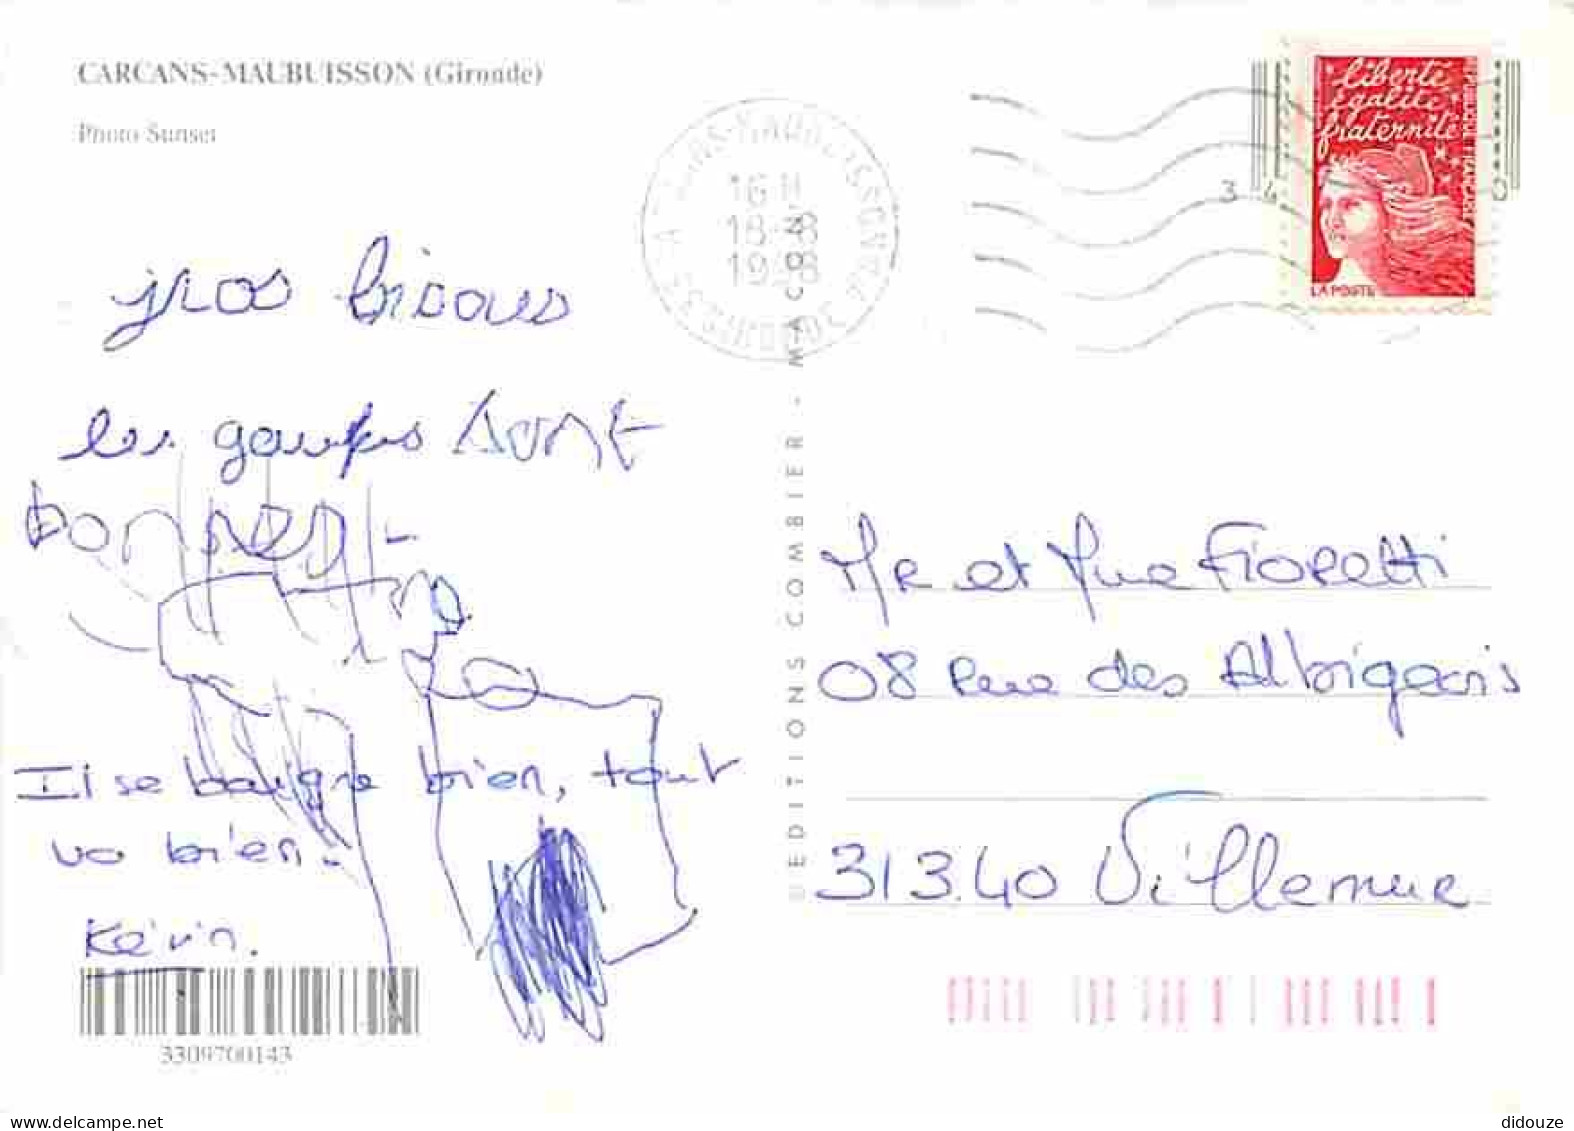 CARCANS-MAUBUISSON (Gironde)
Photo Sunset
16 H
18-8
1998
GIRONDE
liberté
égalité
fraternité
RÉPUBLIQUE FRANÇAISE
LA POSTE
gros bisous
les gaufres sont
Il se baigne bien, tout
va bien.
Kévin.
3309700143
EDITIONS COMBIER - MACON
Mr et Mme Fioretti
08 Rue des Albigeois
31340 Villemur
delcampe.net
didouze